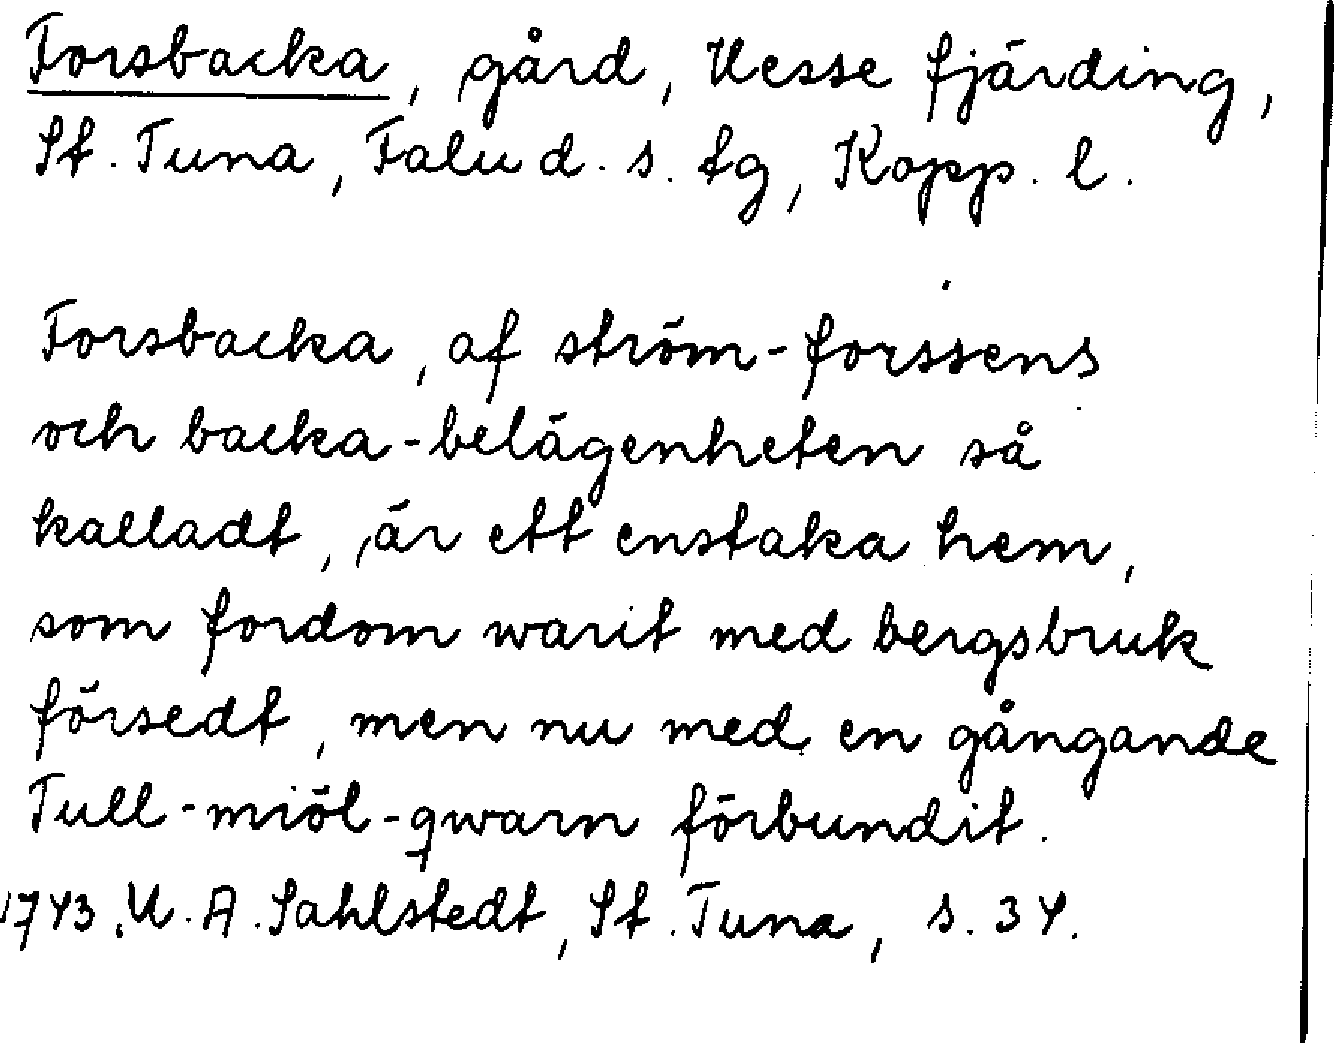 Forsbacka, gård, Uesse fjärding,
St. Tuna, Falu d. s. tg, Kopp. l.
Forsbacka, af ström-forssens
och backa-belägenheten så
kalladt, är ett enstaka hem,
som fordom warit med bergsbruk
försedt, men nu med en gångande
Tull-miöl-qwarn förbundit.
1743. U. A. Sahlstedt, St. Tuna, s. 34.